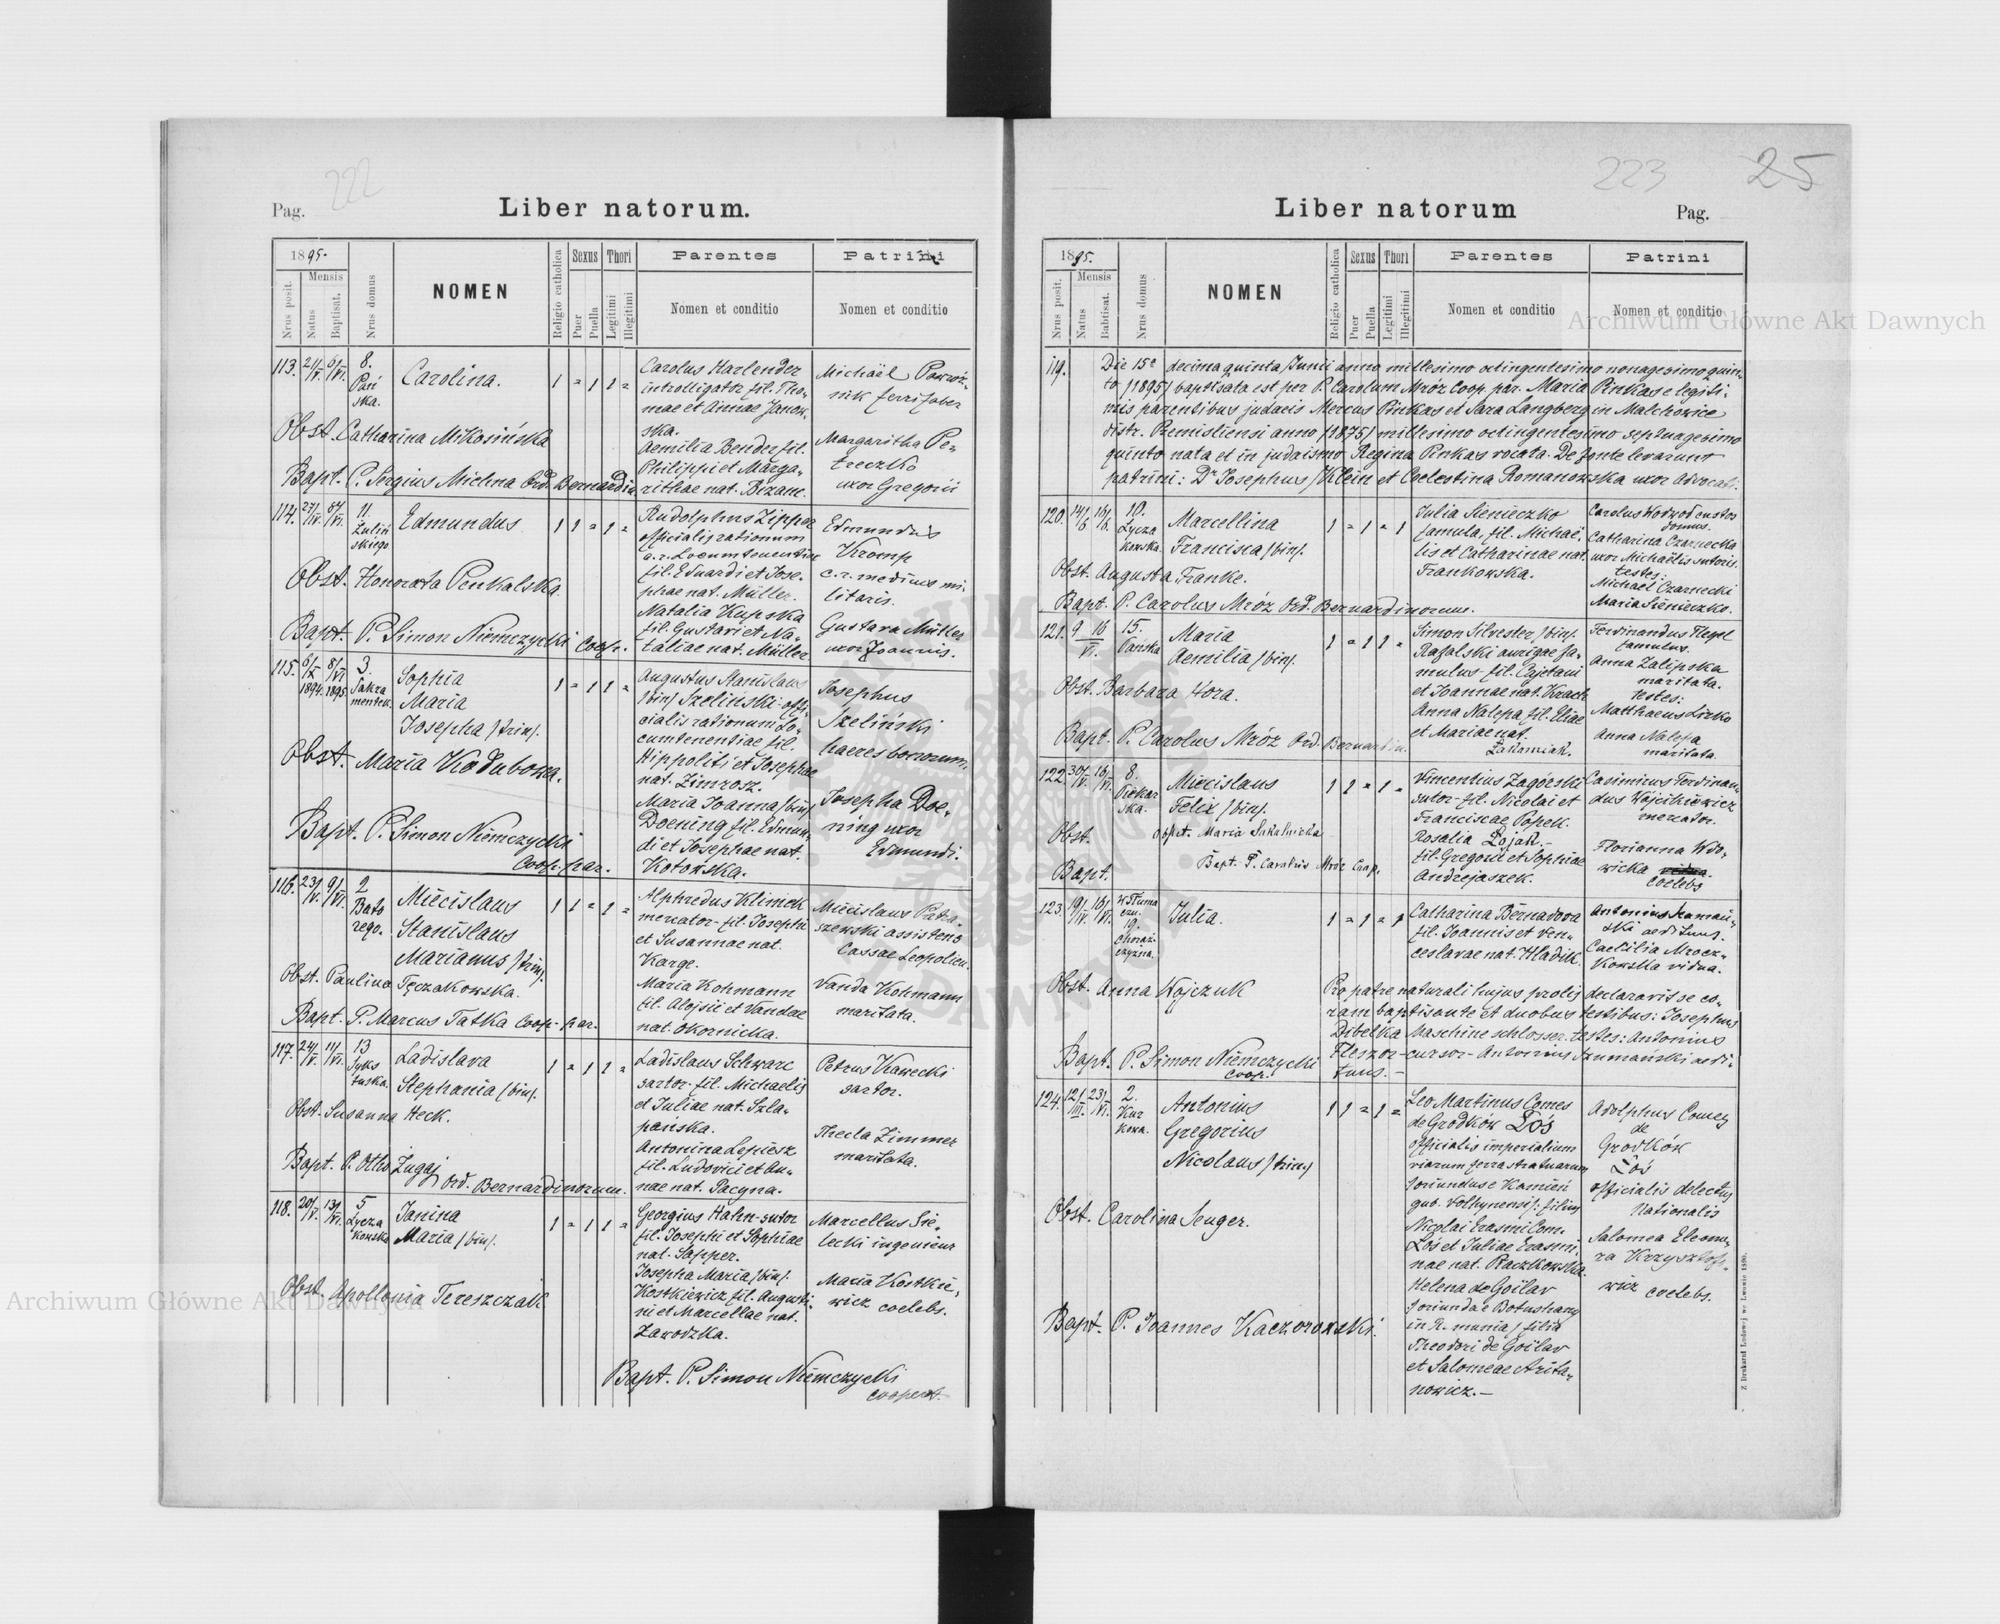 222
Pag.
Liber natorum.
1895.
Mensis
Nrus posit.
Natus
Baptisat.
Nrus domus
NOMEN
Religio catholica
Sexus
Puer
Puella
Thori
Legitimi
Illegitimi
Parentes
Nomen et conditio
Patrini
Nomen et conditio
113. 21/V. 6/VI. 8.
Pań
ska.
Carolina.
1 = 1 1 =
Carolus Harlender
introlligator fil. Tho-
mae et Annae Janow
ska.
Aemilia Bender fil.
Philippi et Marga-
rithae nat. Bizanc.
Michaël Powróz-
nik ferrifaber
Margaritha Pe-
treczko
uxor Gregorii
Obst. Catharina Mikosińska
Bapt. P. Sergius Michna Ord. Bernardin
114. 11.
Zuliń
skiego
Edmundus
1 1 = 1 =
Rudolphus Zipper
officialis rationum
c.r. Locumtenentiae
fil. Eduardi et Jose-
phae nat. Müller.
Natalia Kupska
fil. Gustavi et Na-
taliae nat. Müller
Edmundus
Kromp
c.r. medicus mi-
litaris.
Gustava Müller
uxor Joannis.
Obst. Honorata Penkalska.
Bapt. P. Simon Niemczycki Coop.
115. 6/IX 1894. 8/VI 1895 3.
Sakra
mentek.
Sophia
Maria
Josepha /trin/.
1 = 1 1 =
Augustus Stanislaus
/bin/ Szeliński offi-
cialis rationum Lo-
cumtenentiae fil.
Hippoliti et Josephae
nat. Zimrosz.
Maria Joanna /bin/
Doening fil. Edmun
di et Josephae nat.
Kotowska.
Josephus
Szeliński
haeres bonorum.
Josepha Doe-
ning uxor
Edmundi.
Obst. Maria Kadubowa.
Bapt. P. Simon Niemczycki
Coop. par.
116. 23/V. 9/VI. 2
Bato
rego.
Miecislaus
Stanislaus
Marianus /trin/.
1 1 = 1 =
Alphredus Klimek
mercator - fil. Josephi
et Susannae nat.
Karge.
Maria Kohmann
fil. Aloisii et Vandae
nat. Okornicka.
Miecislaus Patra
szewski assistens
Cassae Leopolien.
Vanda Kohmann
maritata.
Obst. Paulina Tęczakowska.
Bapt. P. Marcus Tatka Coop. par.
117. 24/V. 11/VI. 13
Syks
tuska.
Ladislava
Stephania /bin/.
1 = 1 1 =
Ladislaus Schwarc
sartor - fil. Michaelis
et Juliae nat. Szla-
pańska.
Antonina Lepiesz
fil. Ludovici et An-
nae nat. Pacyna.
Petrus Kawecki
sartor.
Thecla Zimmer
maritata.
Obst. Susanna Heck.
Bapt. P. Otho Zugaj Ord. Bernardinorum.
118. 20/V. 13/VI. 5
Łycza
kowska
Janina
Maria /bin/.
1 = 1 1 =
Georgius Hahn - sutor
fil. Josephi et Sophiae
nat. Sapper.
Josepha Maria /bin/.
Kostkiewicz fil. Augusti-
ni et Marcellae nat.
Zawodzka.
Marcellus Sie-
lecki ingenieur
Maria Kostkie-
wicz coelebs.
Obst. Apollonia Tereszczak
Bapt. P. Simon Niemczycki
cooperat.
223
25
Liber natorum
Pag.
1895.
Mensis
Nrus posit.
Natus
Babtisat.
Nrus domus
NOMEN
Religio catholica
Sexus
Puer
Puella
Thori
Legitimi
Illegitimi
Parentes
Nomen et conditio
Patrini
Nomen et conditio
119. Die 15ª decima quinta Junii anno millesimo octingentesimo nonagesimo quin-
to /1895/ baptisata est per P. Carolum Mróz Coop. par. Maria Pinkas e legiti-
mis parentibus judaeis Mercus Pinkas et Sara Langberg in Malchowice
distr. Premisliensi anno /1875/ millesimo octingentesimo septuagesimo
quinto nata et in judaismo Regina Pinkas vocata. De fonte levarunt
patrini: Dr Josephus Klein et Coelestina Romanowska uxor Advocati.
120. 14/6 16/6. 10.
Łycza
kowska.
Marcellina
Francisca /bin/.
1 = 1 = 1
Julia Sienieczko
famula, fil. Michaë-
lis et Catharinae nat.
Frankowska.
Carolus Wodwod custos
domus.
Catharina Czarnecka
uxor Michaëlis sutoris.
testes:
Michaël Czarnecki
Maria Sienieczko.
Obst. Augusta Franke.
Bapt. P. Carolus Mróz Ord. Bernardinorum.
121. 9 16
VI. 15.
Pańska
Maria
Aemilia /bin/.
1 = 1 1 =
Simon Silvester /bin/.
Rafalski aurigae fa-
mulus - fil. Cajetani
et Joannae nat. Krach
Anna Nalepa, fil. Eliae
et Mariae nat.
Łakomiak.
Ferdinandus Flegel
famulus.
Anna Zalipska
maritata.
Testes:
Matthaeus Lizko
Anna Nalepa
maritata.
Obst. Barbara Hora.
Bapt. P. Carolus Mróz Ord. Bernardin.
122. 16/VI. 8.
Piekar
ska.
Miecislaus
Felix /bin/.
1 1 = 1 =
Vincentius Zagórski
sutor - fil. Nicolai et
Franciscae Popek.
Rosalia Łojak.-
fil. Gregorii et Sophiae
Andrejaszek.
Casimirus Ferdinan-
dus Wojcikiewicz
mercator.
Florianna Wdo-
wicka
coelebs
Obst. obst. Maria Sakalnicka
Bapt. Bapt. P. Carolus Mróz Coop.
123. 19/IV. 16/VI.
19.
Chorąż-
czyzna.
Julia.
1 = 1 = 1
Catharina Bernadova
fil. Joannis et Ven-
ceslavae nat. Hladik.
Antonius Szumań-
ski aedituus.
Caecilia Mrocz-
kowska vidua.
Obst. Anna Wojczuk
Pro patre naturali hujus prolis declaravit se co-
ram baptisante et duobus testibus: Josephus
Dibelka Maschine schlosser. testes: Antonius
Fleszor - cursor - Antonius Szumański aedi-
tuus. -
Bapt. P. Simon Niemczycki
Coop.
124. 12/III. 23/VI. 2.
Kur
kowa.
Antonius
Gregorius
Nicolaus /trin/
1 1 = 1 =
Leo Martinus Comes
de Grodków Łoś
officialis imperialium
viarum ferrastratuarum
/oriundus e Kamień
gub. Volhynensi/ filius
Nicolai Erasmi Com.
Łoś et Juliae Erasmi
nae nat. Raczkowska.
Helena de Goilav
/oriunda e Botushany
in R. munia/ filia
Theodori de Goilav
et Salomeae Arita-
nowicz. -
Adolphus Comes
de
Grodków
Łoś
officialis delectus
Nationalis
Salomea Eleono-
ra Krzysztofo-
wicz coelebs.
Obst. Carolina Senger.
Bapt. P. Joannes Kaczorowski.
Z Drukarni Ludowej we Lwowie 1890.
Archiwum Główne Akt Dawnych
Archiwum Główne Akt Dawnych